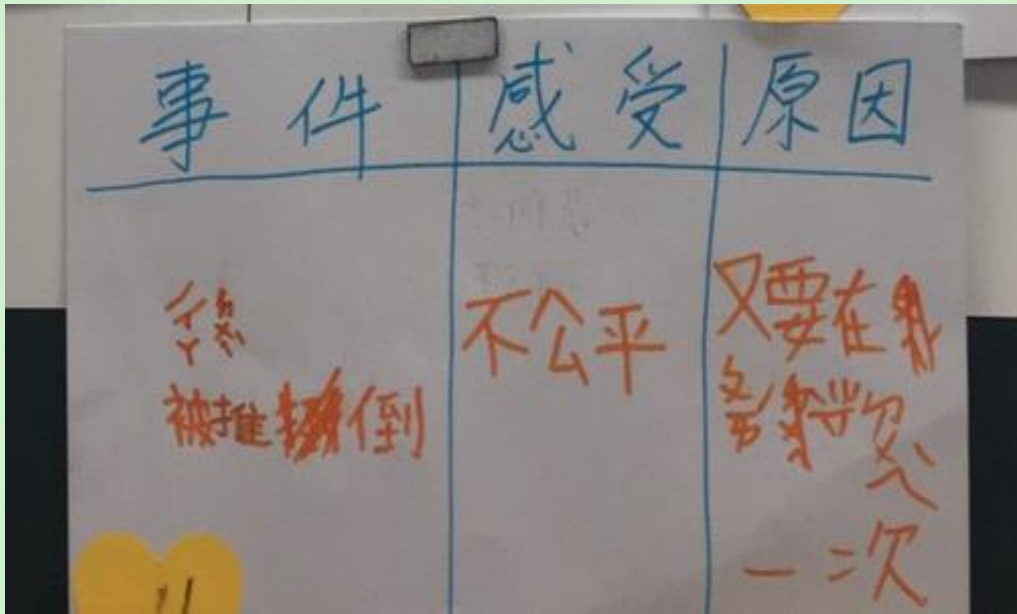 事件 感受 原因
後
被推倒
不公平
又要在
一次